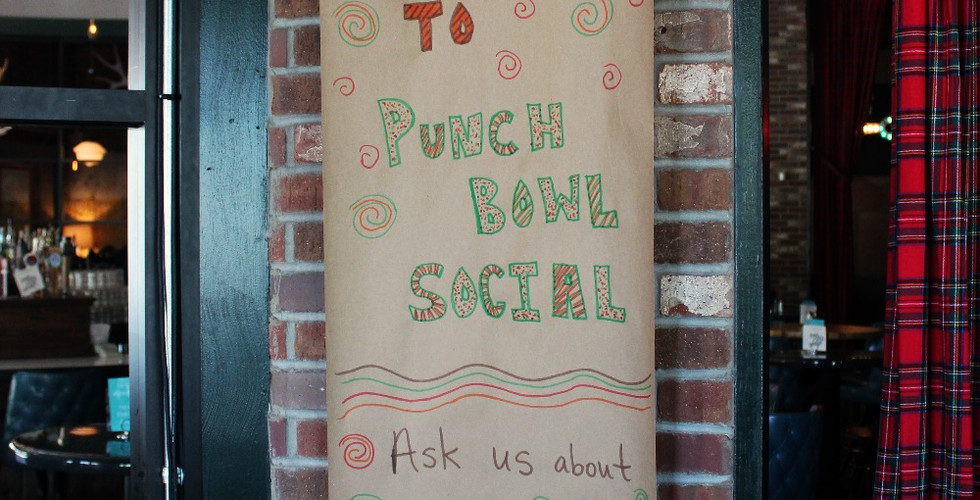 TO
PUNCH
BOWL
SOCIAL
Ask us about